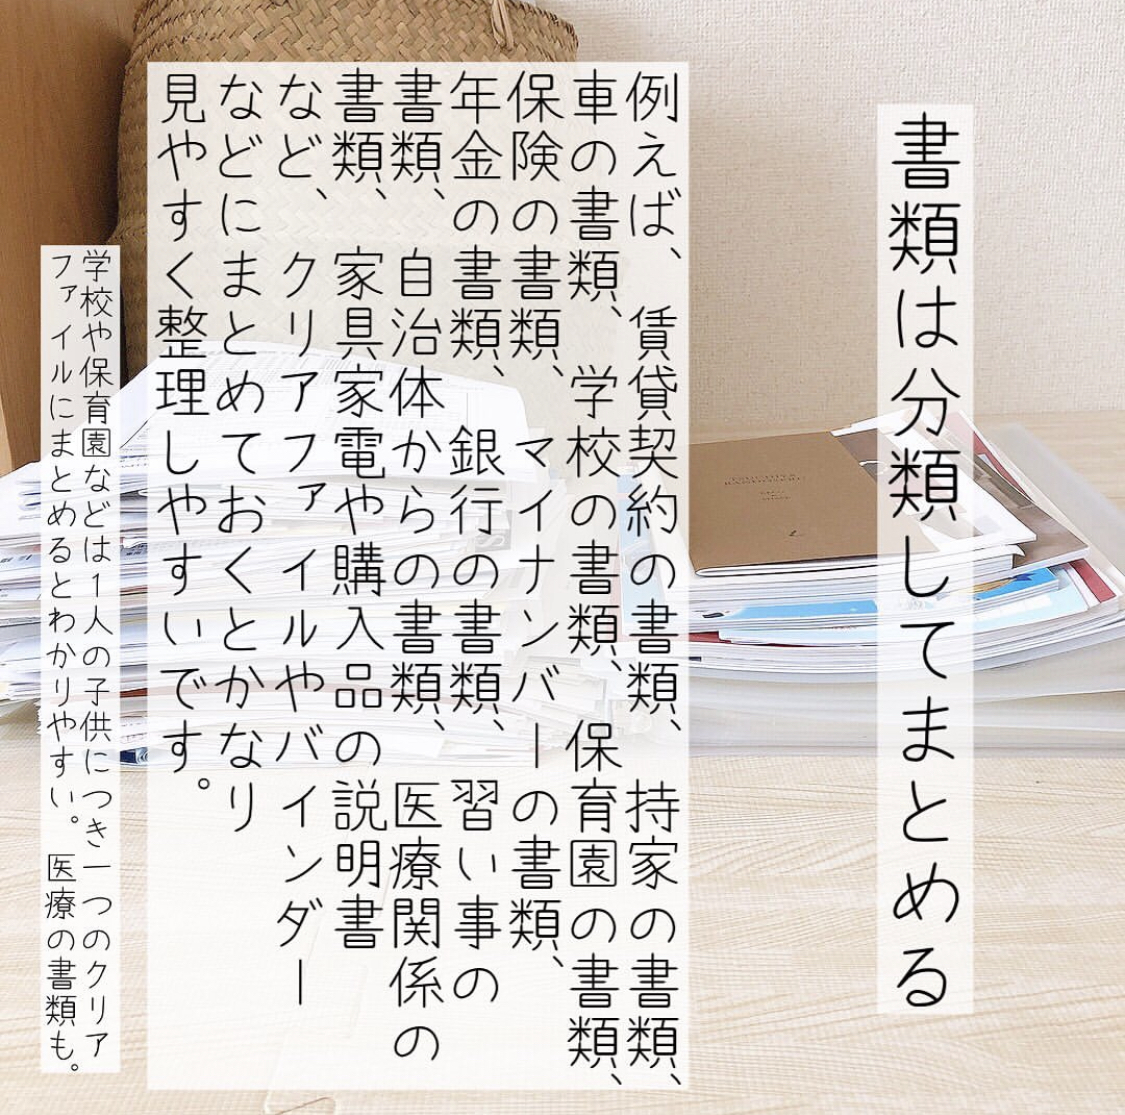 書類は分類してまとめる
例えば、賃貸契約の書類、持家の書類、
車の書類、学校の書類、保育園の書類、
保険の書類、マイナンバーの書類、
年金の書類、銀行の書類、習い事の
書類、自治体からの書類、医療関係の
書類、家具家電や購入品の説明書
など、クリアファイルやバインダー
などにまとめておくとかなり
見やすく整理しやすいです。
学校や保育園などは1人の子供につき一つのクリア
ファイルにまとめるとわかりやすい。医療の書類も。